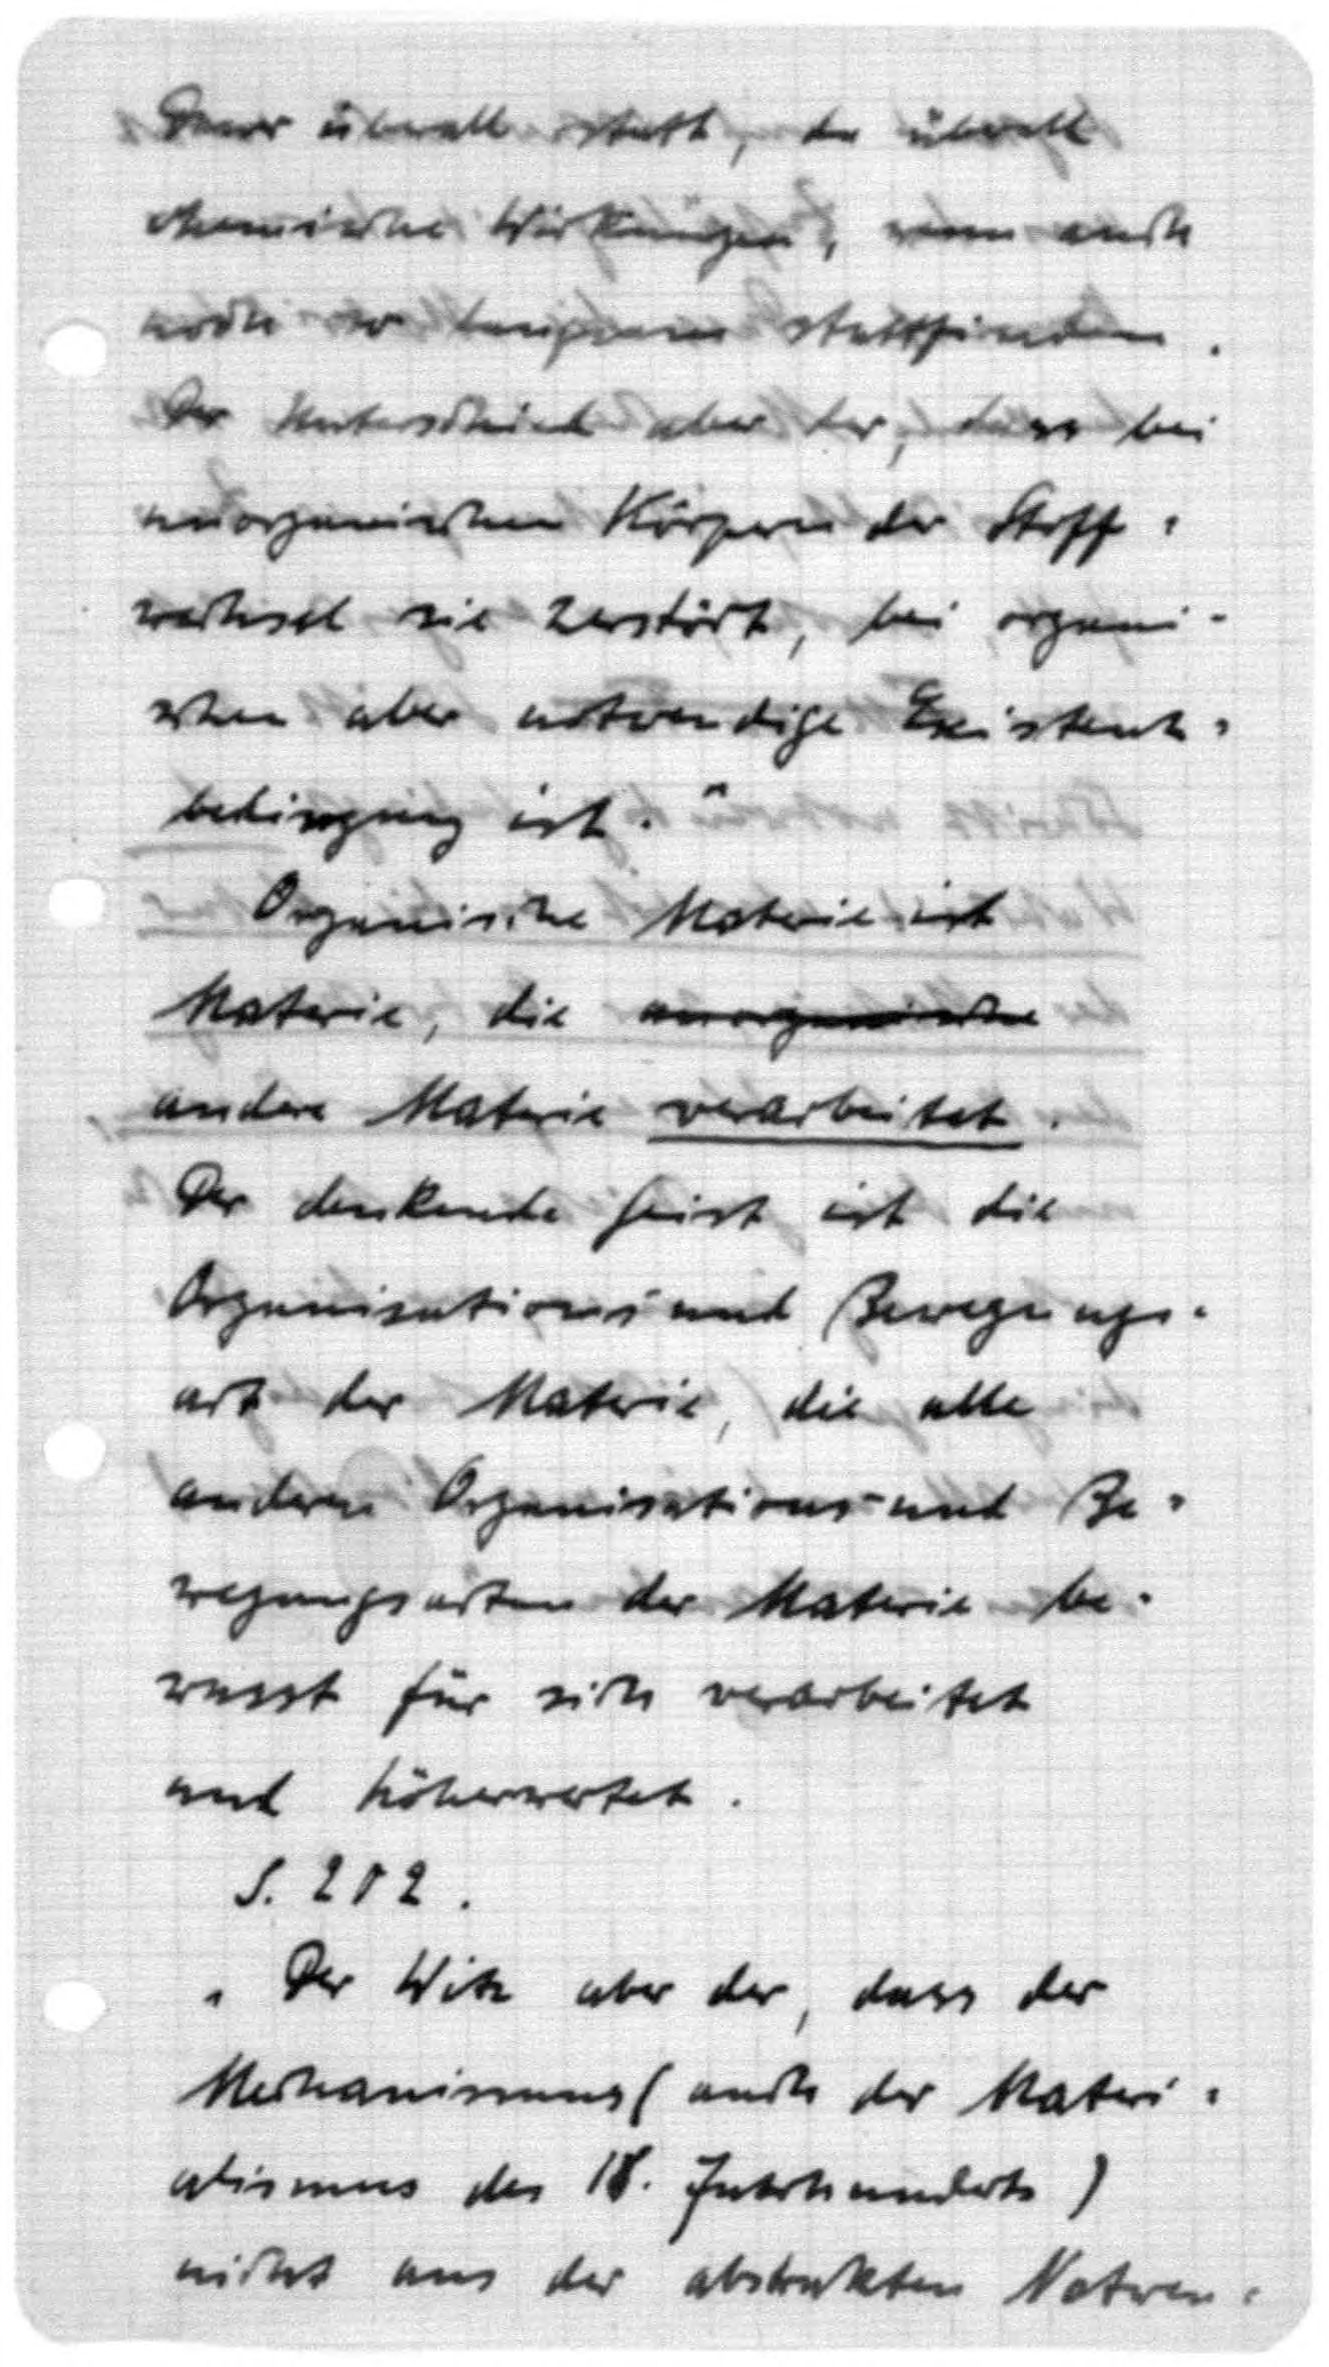 Dauer überall statt, da überall
chemische Wirkungen, wenn auch
noch so langsam stattfinden.
Der Unterschied aber der, dass bei
unorganischen Körpern der Stoff-
wechsel sie zerstört, bei organi-
schen aber notwendige Existenz-
bedingung ist."
Organische Materie ist
Materie, die unorganische
andere Materie verarbeitet.
Der denkende Geist ist die
Organisations- und Bewegungs-
art der Materie, die alle
anderen Organisations- und Be-
wegungsarten der Materie be-
wusst für sich verarbeitet
und höherwertet.
S. 202.
„Der Witz aber der, dass der
Mechanismus (auch der Materi-
alismus des 18. Jahrhunderts)
nicht aus der abstrakten Notwen-